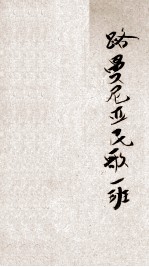 路曼尼亚民歌一班